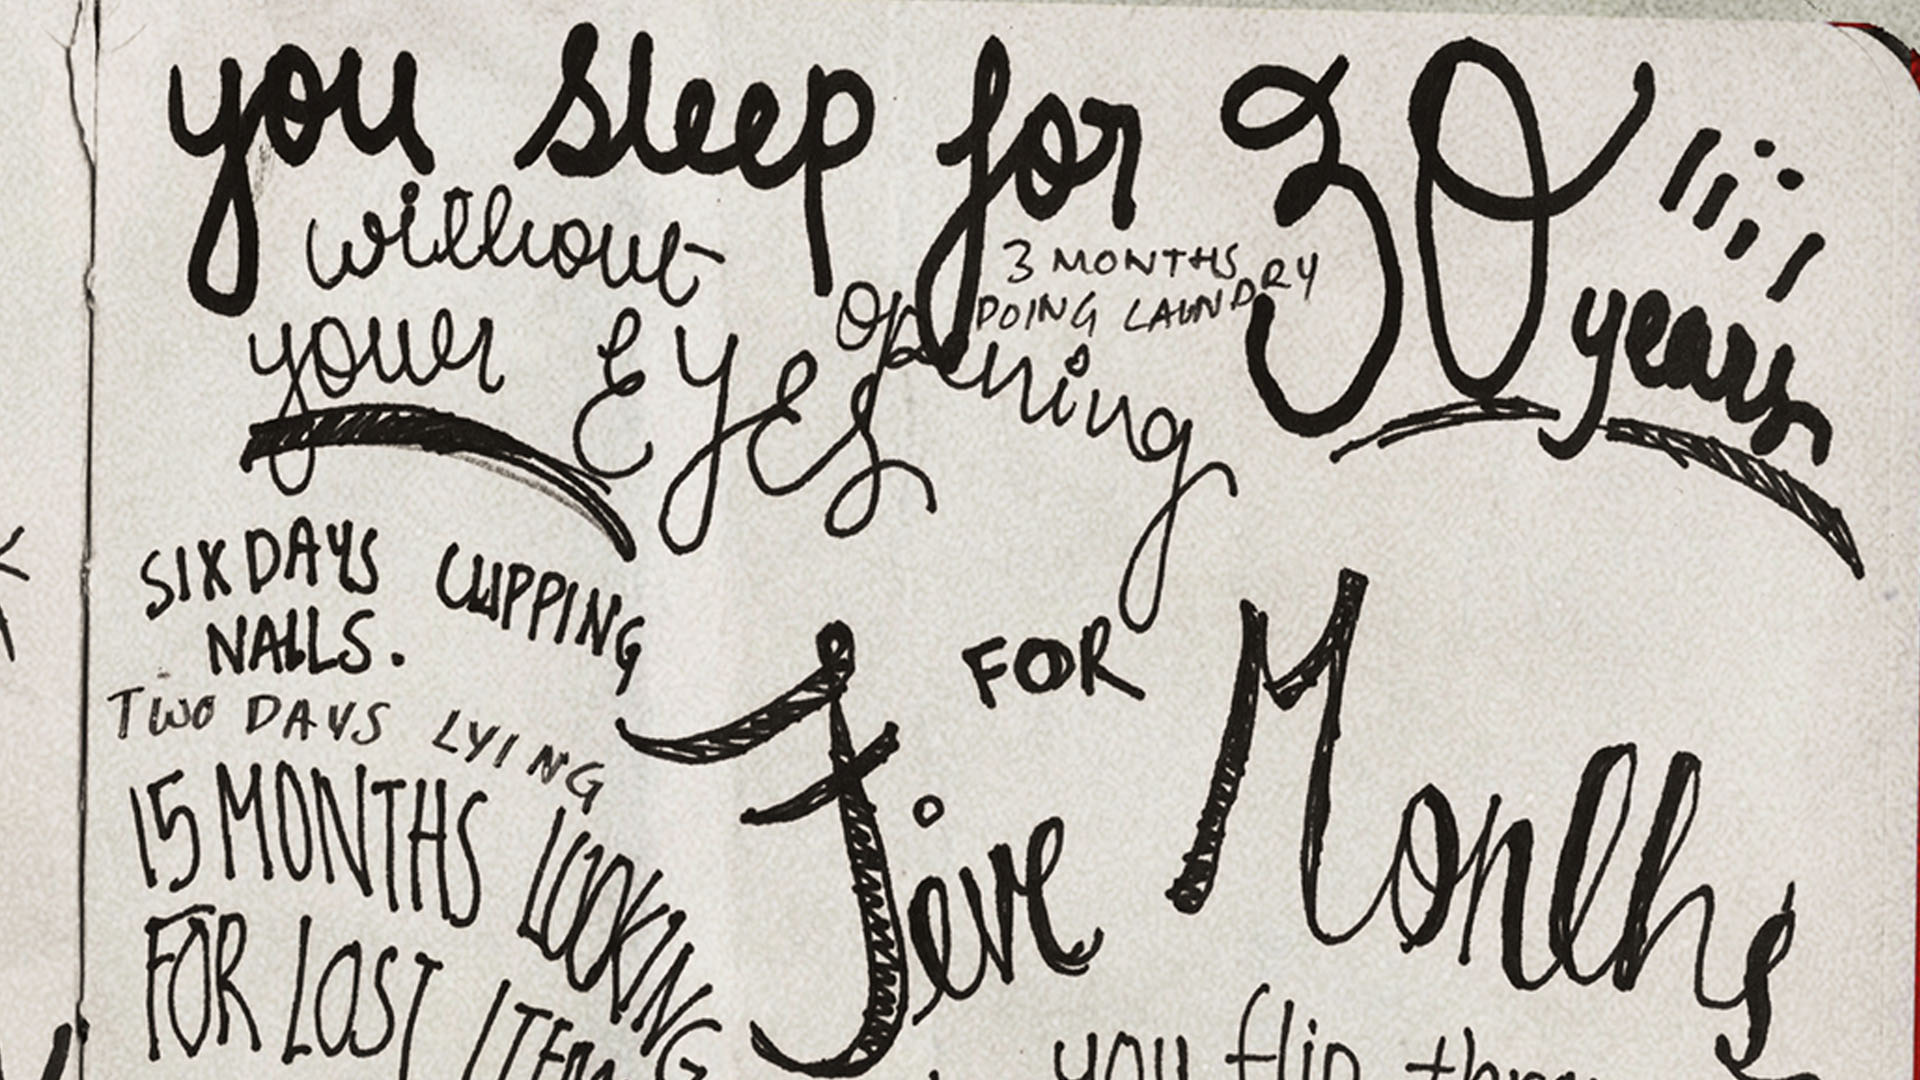 you sleep for 30 years
without
your EYES opening
3 MONTHS
DOING LAUNDRY
SIX DAYS CLIPPING
NAILS.
TWO DAYS LYING
15 MONTHS LOOKING
FOR LOST ITEM
FOR
Five Months
you flip